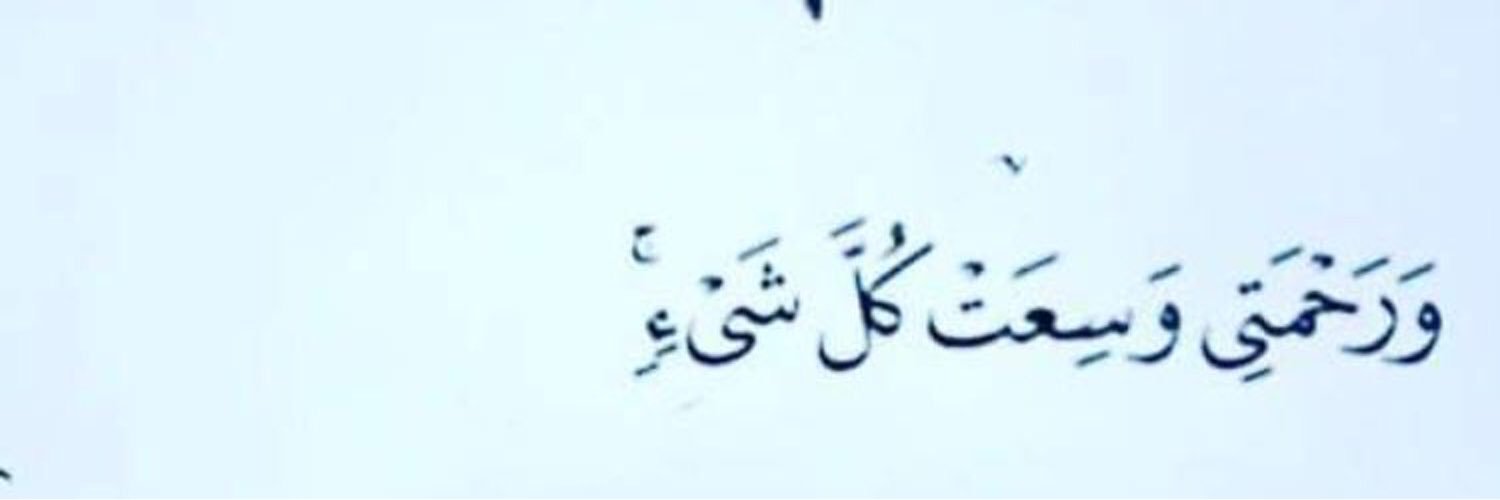 وَرَحْمَتِى وَسِعَتْ كُلَّ شَىْءٍۚ